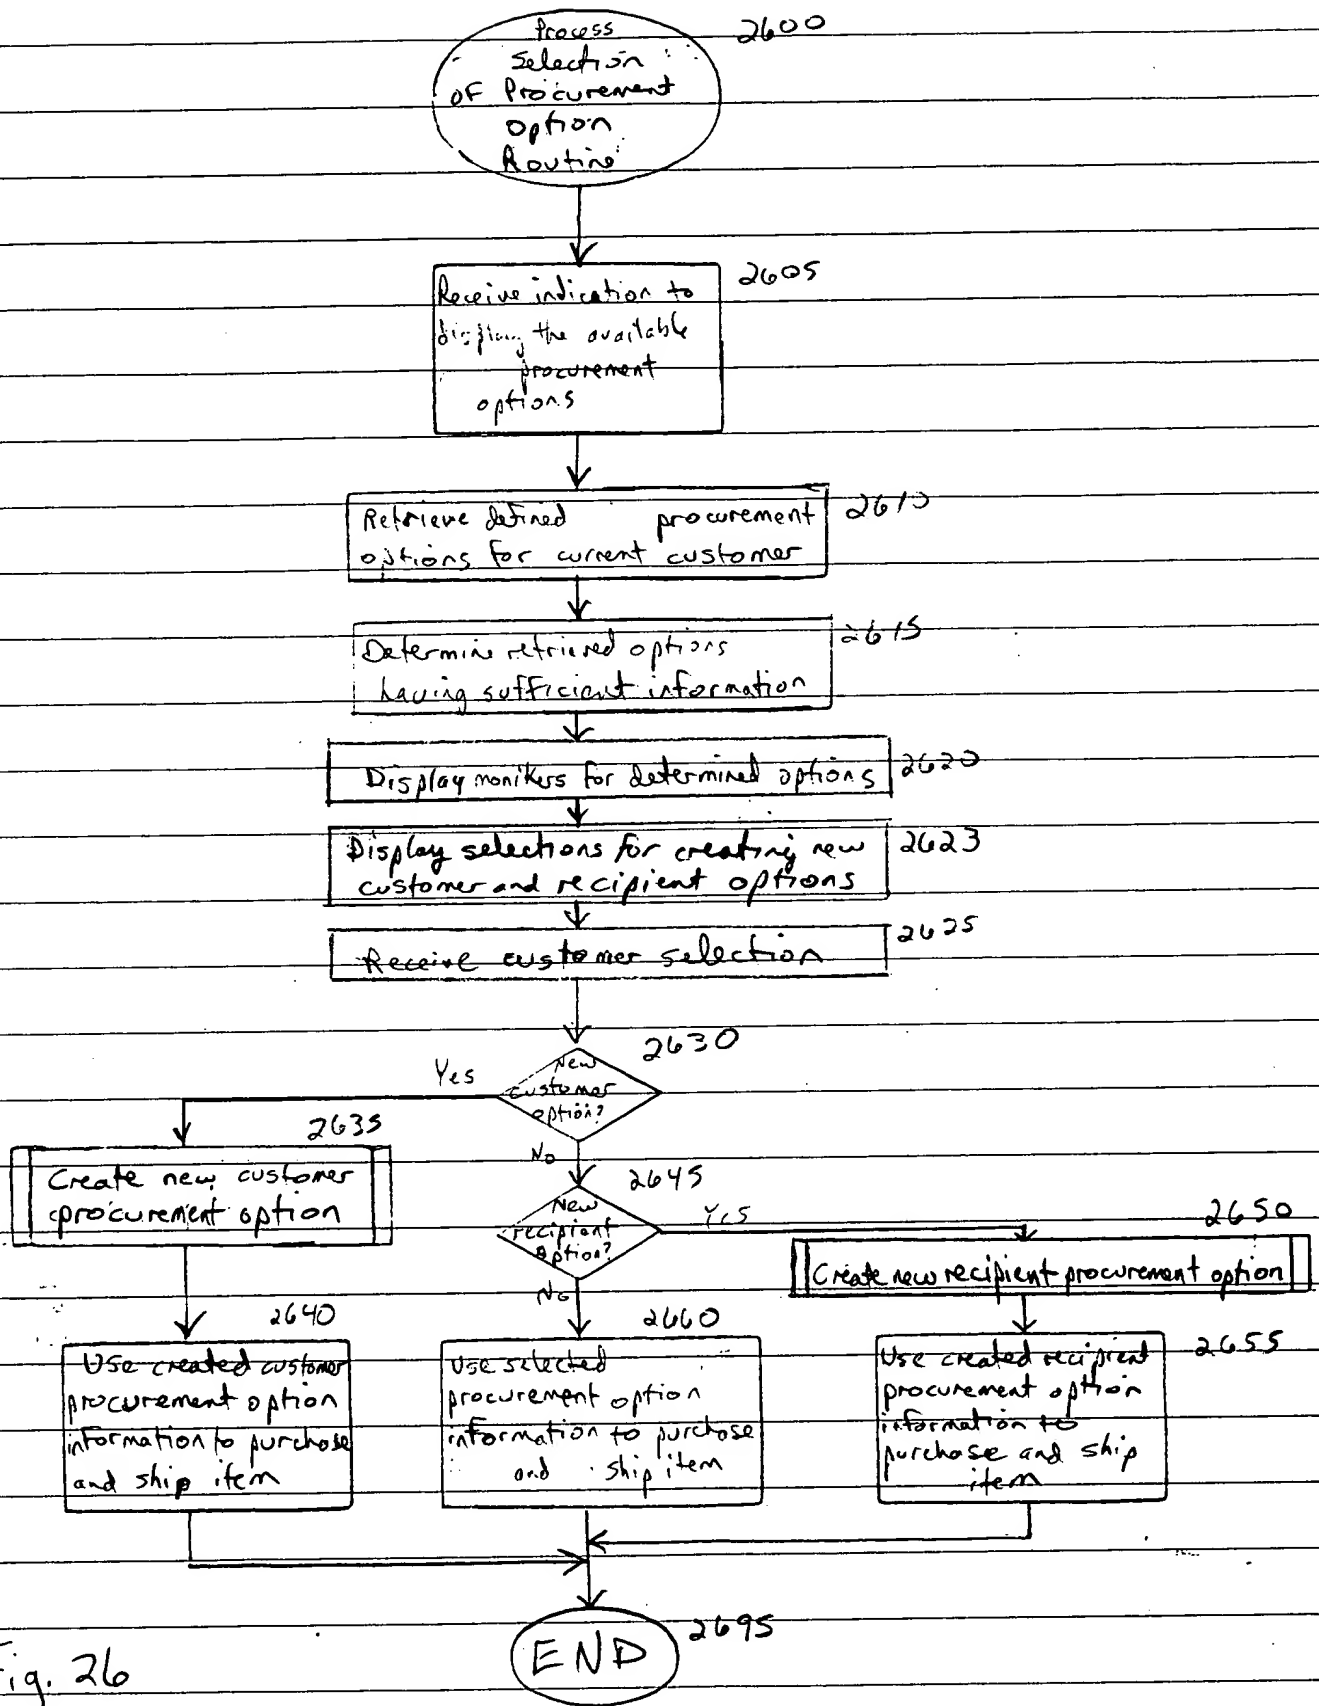 Process
Selection
of Procurement
Option
Routine
2600
Receive indication to
display the available
procurement
options
2605
Retrieve defined procurement
options for current customer
2610
Determine retrieved options
having sufficient information
2615
Display monikers for determined options
2620
Display selections for creating new
customer and recipient options
2623
Receive customer selection
2625
2630
New
customer
option?
Yes
No
2635
Create new customer
procurement option
2645
New
recipient
option?
Yes
No
2650
Create new recipient procurement option
2640
Use created customer
procurement option
information to purchase
and ship item
2660
Use selected
procurement option
information to purchase
and ship item
2655
Use created recipient
procurement option
information to
purchase and ship
item
END
2695
Fig. 26